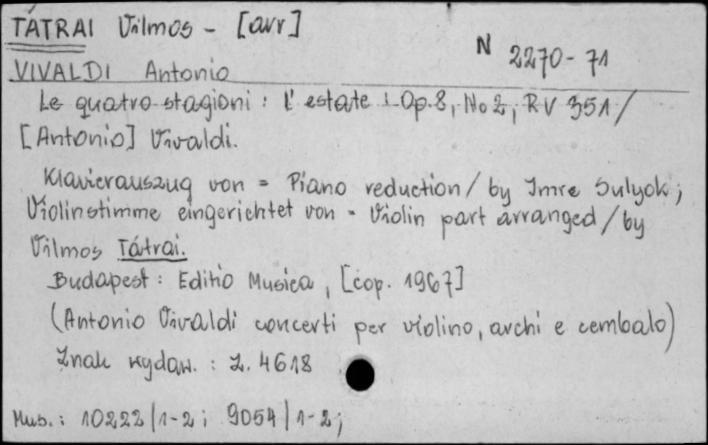 TÁTRAI Vilmos - [arr]
N 2270-71
VIVALDI Antonio
Le quatro stagioni : L'estate : Op. 8, No 2, RV 351 /
[Antonio] Vivaldi.
Klavierauszug von = Piano reduction / by Imre Sulyok ;
Violinstimme eingerichtet von = Violin part arranged / by
Vilmos Tátrai.
Budapest : Editio Musica, [cop. 1967]
(Antonio Vivaldi concerti per violino, archi e cembalo)
Znak wydaw. : Z. 4618
Mus. : 10222 | 1-2 ; 9054 | 1-2 ;